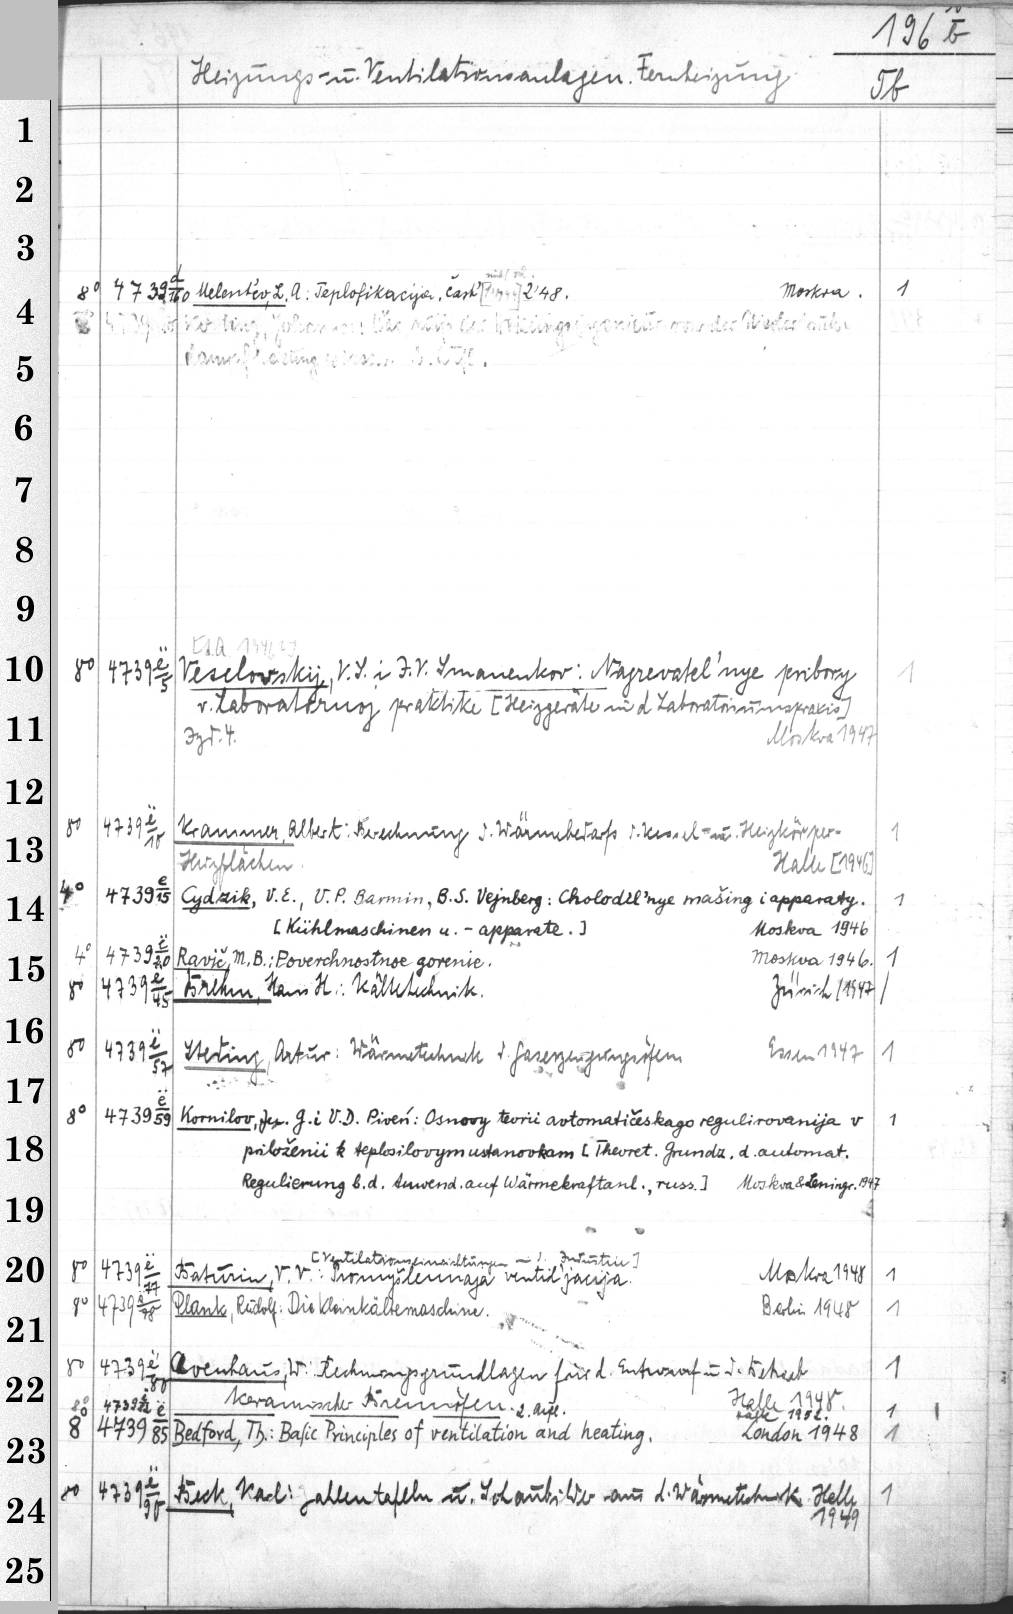 196 b̈
Heizungs- u. Ventilationsanlagen. Fernheizung.
Tb
1
2
3
8° 4739 d/160 Melent'ev, L. A.: Teplofikacija. čast' 2 '48. Moskva. 1
4
5
6
7
8
9
10
8° 4739 ë/5 Veselovskij, V. S. i I. V. Smanenkov: Nagrevatel'nye pribory 1
v. Laboratornoj praktike [Heizgeräte in d Laboratoriumspraxis]
11
Izd. 4. Moskva 1947
12
8° 4739 ë/10 Krammer, Albert: Berechnung d. Wärmebedarfs d. Kessel- u. Heizkörper- 1
13
Heizflächen. Halle [1946]
4° 4739 e/15 Cydzik, V. E., V. P. Barmin, B. S. Vejnberg: Cholodil'nye mašiny i apparaty. 1
14
[Kühlmaschinen u. -apparate.] Moskva 1946
4° 4739 ë/20 Ravič, M. B.: Poverchnostnoe gorenie. Moskva 1946. 1
15
8° 4739 ë/45 Brehm, Hans H.: Kältetechnik. Zürich (1947) 1
16
8° 4739 ë/57 Steding, Artur: Wärmetechnik d. Gaserzeugungsöfen Essen 1947 1
17
8° 4739 ë/59 Kornilov, G. i V. D. Piven': Osnovy teorii avtomatičeskago regulirovanija v 1
18
priloženii k teplosilovym ustanovkam [Theoret. Grundz. d. automat.
Regulierung b. d. Anwend. auf Wärmekraftanl., russ.] Moskva & Leningr. 1947
19
[Ventilationseinrichtungen in d. Industrie]
20
8° 4739 ë/77 Baturin, V. V.: Promyšlennaja ventiljacija. Moskva 1948 1
8° 4739 ë/78 Plank, Rudolf: Die Kleinkältemaschine. Berlin 1948 1
21
8° 4739 ë/80 Avenhaus, W: Rechnungsgrundlagen für d. Entwurf u. d. Betrieb 1
22
keramischer Brennöfen. Halle 1948.
8° 4739 2. Aufl. Halle 1952. 1
8 4739 ë/85 Bedford, Th.: Basic Principles of ventilation and heating. London 1948 1
23
8° 4739 ë/90 Beck, Karl: Zahlentafeln u. Schaubilder aus d. Wärmetechnik. Halle 1
24
1949
25